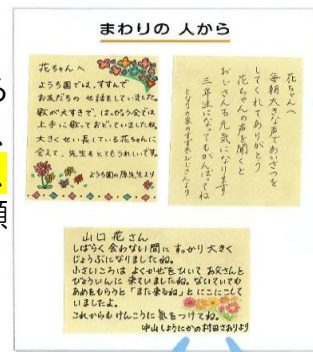 まわりの 人から
花ちゃんへ
ようち園では、すすんで
お友だちの せ話をしていました。
歌が大すきで、はっぴょう会では
上手に歌っておどっていましたね。
大きくせい長している花ちゃんに
会えて、先生もとてもうれしいです。
ようち園の原先生より
花ちゃんへ
毎朝大きな声であいさつを
してくれてありがとう
花ちゃんの声を聞くと
おじさんも元気になります
三年生になってもがんばってね
となりの家のすずきおじさんより
山口 花さん
しばらく会わない間に すっかり 大きく
じょうぶになりましたね。
小さいころは よくかぜをひいて お父さんと
びょういんに 来ていましたね。ないていても
あめをもらうと「また来るね」とにこにこして
いましたよ。
これからもけんこうに 気をつけてね。
中山しょうにかの村田さおりより
る
、
、
額